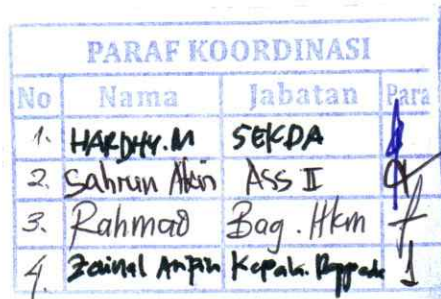 PARAF KOORDINASI
No Nama Jabatan Para
1. HARDHY.M SEKDA
2. Sahrun ASS II
3. Rahmad Bag. Hkm
4. Zainal Kepala